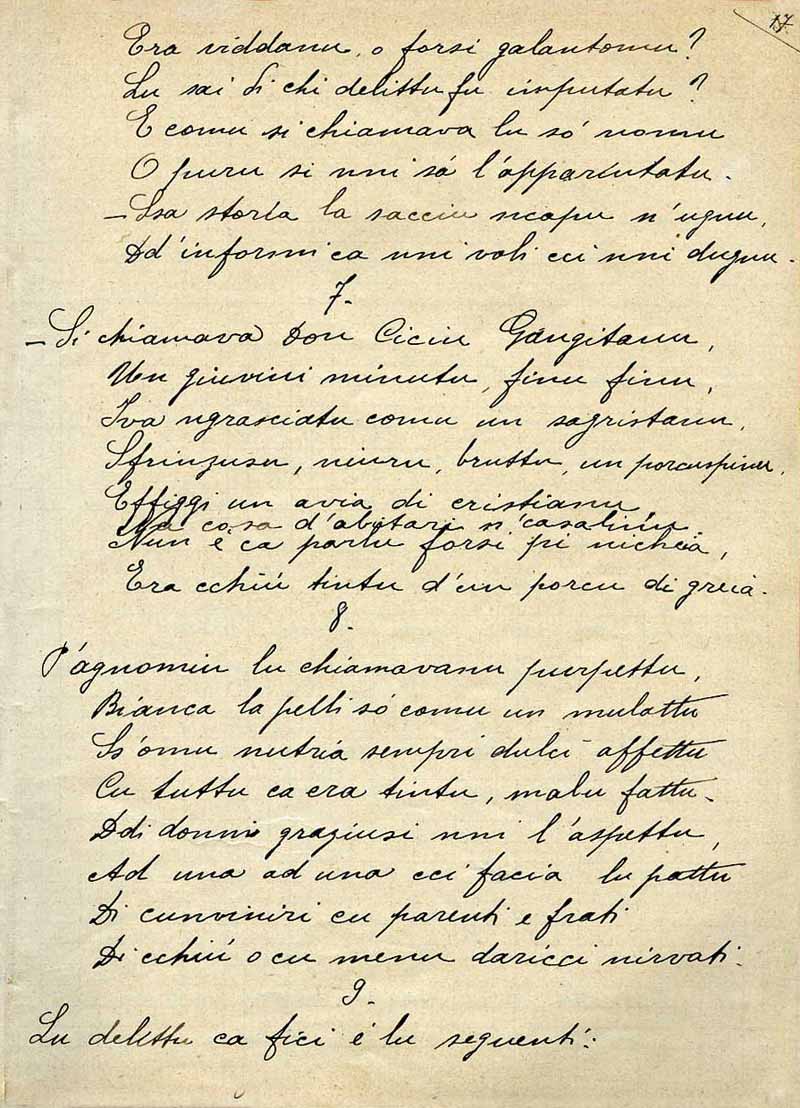 17.
Era viddanu, o forsi galantomu?
Lu sai di chi delittu fu imputatu?
E comu si chiamava lu só nomu
O puru si nni sá l'appartutatu.
- Ssa storia la sacciu ncapu n'ugnu,
Dd'informi ca nni voli cci nni dugnu.
7.
- Si chiamava Don Ciciu Gangitanu,
Un giuvini minutu, finu finu,
Iva ngrasciatu comu un sagristanu,
Sfrinzusu, niuru, bruttu, un porcuspinu,
Effiggi un avia di cristianu
Na casa d'abitari n'casalinu.
Nun é ca parlu forsi pi nicheia,
Era cchiú tintu d'un porcu di greia.
8.
P'agnomiu lu chiamavanu purpettu,
Bianca la pelli só comu un mulattu
Ss'omu nutria sempri dulci affettu
Cu tuttu ca era tintu, malu fattu.
Ddi donni graziusi nni l'aspettu,
Ad una ad una cci facia lu pattu
Di cunviniri cu parenti e frati
Di cchiú o cu menu daricci nirvati.
9.
Lu delittu ca fici é lu seguenti: